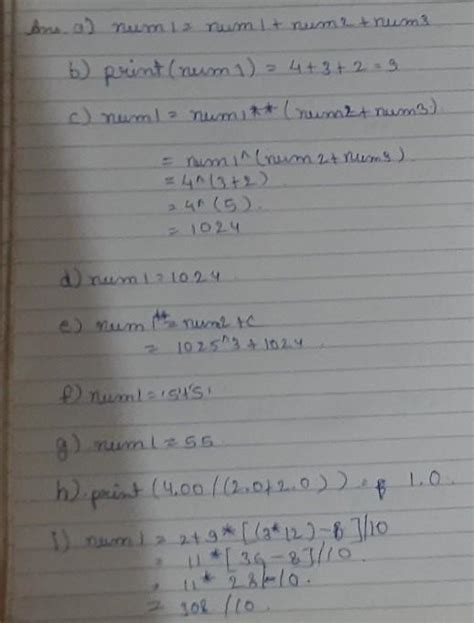 Ans. a) num1 = num1 + num2 + num3
b) print(num1) = 4+3+2 = 9
c) num1 = num1 ** (num2 + num3)
= num1^(num2 + num3)
= 4^(3+2)
= 4^(5).
= 1024
d) num1 = 1024
e) num1 **= num2 + c
= 1025^3 + 1024.
f) num1 = '5'+'5'
g) num1 = 55
h) print (4.00/(2.0+2.0)) = 1.0
i) num1 = 2+9*[(3*12)-8]/10
= 11*[36-8]/10.
= 11* 28/10.
= 308/10.